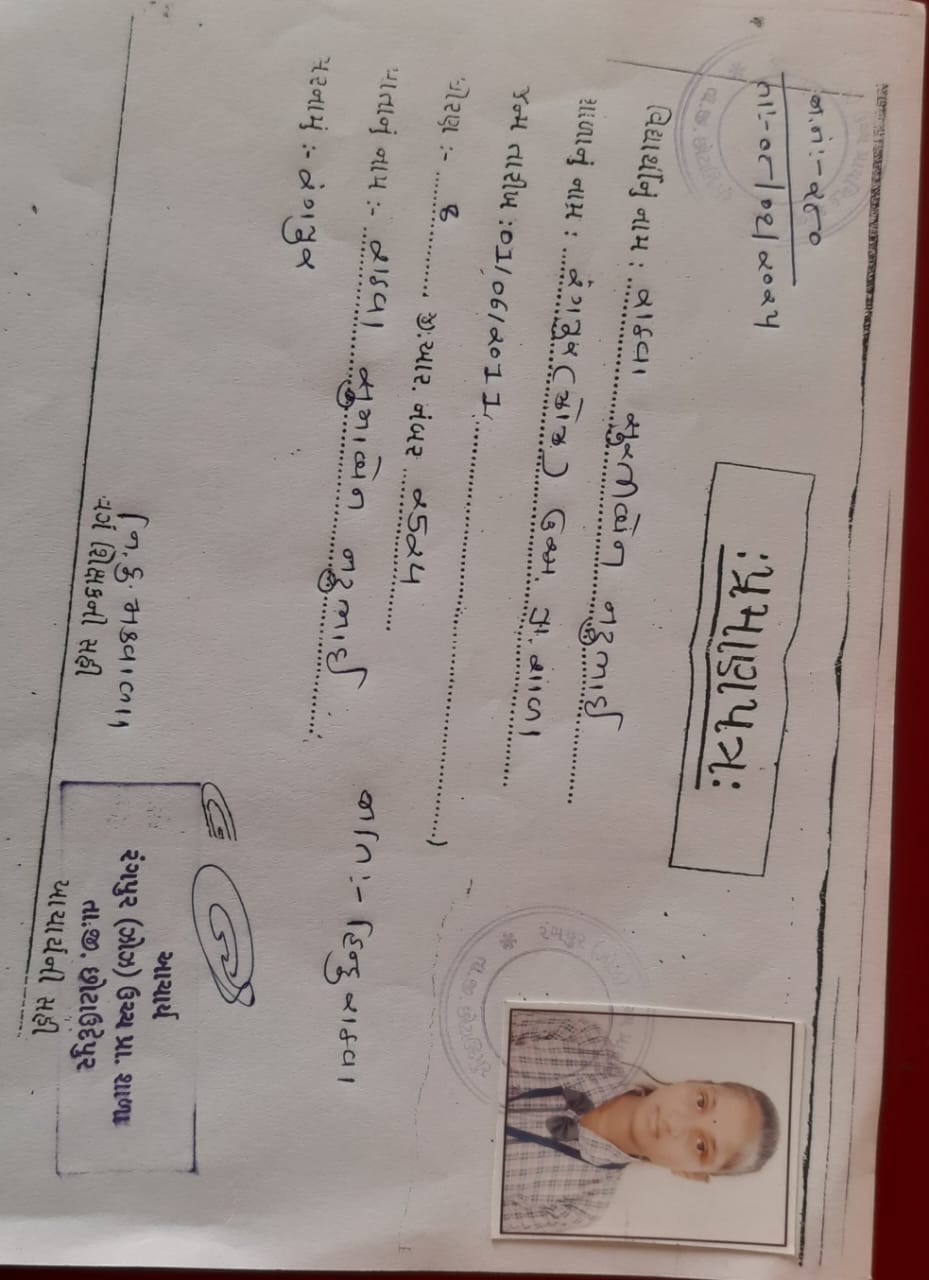 જા.નં:- ૨૮૦
તાઃ- ૦૮/૦૨/૨૦૨૫
:પ્રમાણપત્ર:
વિદ્યાર્થીનું નામ : રાઠવા સુરતાબેન નટુભાઈ
શાળાનું નામ : રંગપુર (ઝોઝ) ઉચ્ચ. પ્રા. શાળા
જન્મ તારીખ : 01/06/2011
ધોરણ :- ૪ જી.આર. નંબર ૨૬૨૫
માતાનું નામ :- રાઠવા નટુભાઈ
જાતિ :- હિન્દુ રાઠવા
સરનામું :- રંગપુર
વર્ગ શિક્ષકની સહી
આચાર્ય
રંગપુર (ઝોઝ) ઉચ્ચ પ્રા. શાળા
તા.જી. છોટાઉદેપુર
આચાર્યની સહી